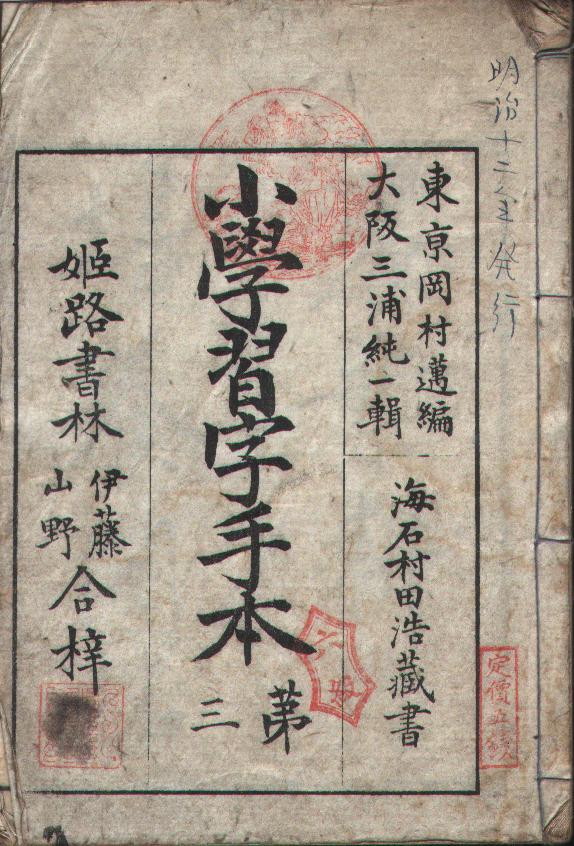 明治十二年発行
東京岡村邁編
大阪三浦純一輯
海石村田浩蔵書
小學習字手本
第三
姫路書林
伊藤
山野
合梓
定價五錢